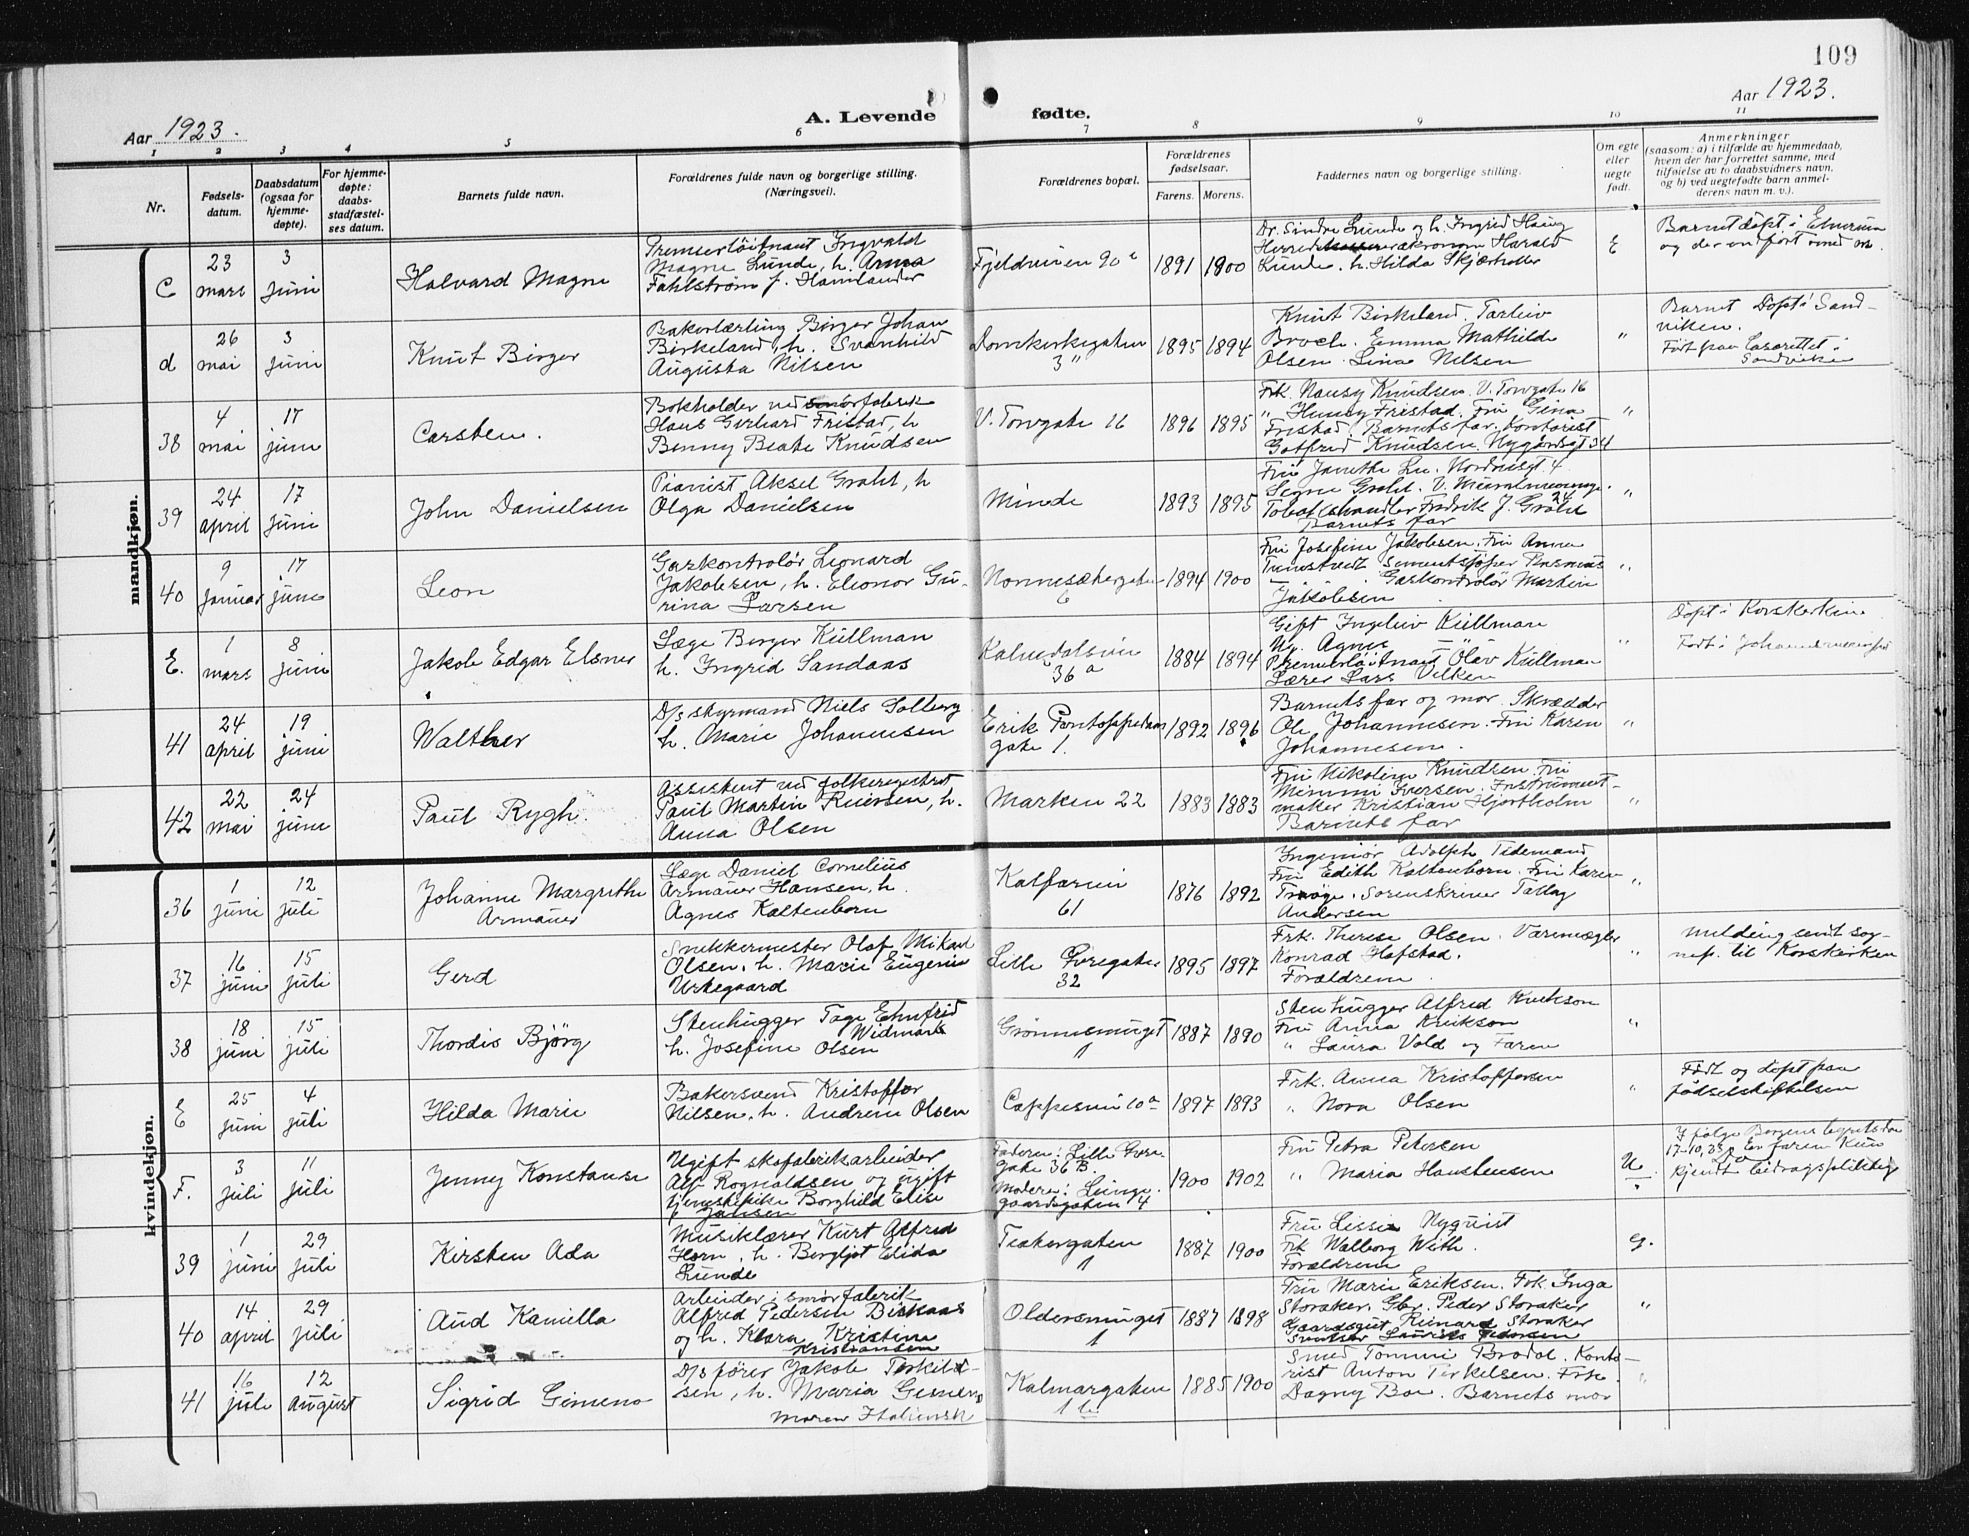 109
Aar 1923.
A. Levende fødte.
Aar 1923.
1 2 3 4 5 6 7 8 9 10 11
Nr.
Fødsels-
datum.
Daabsdatum
(ogsaa for
hjemme-
døpte).
For hjemme-
døpte:
daabs-
stadfæstel-
ses datum.
Barnets fulde navn.
Forældrenes fulde navn og borgerlige stilling.
(Næringsvei).
Forældrenes bopæl.
Forældrenes
fødselsaar.
Farens. Morens.
Faddernes navn og borgerlige stilling.
Om egte
eller
uegte
født.
Anmerkninger
(saasom: a) i tilfælde av hjemmedaab,
hvem der har forrettet samme, med
tilføielse av to daabsvidners navn,
og b) ved uegtefødte barn anmel-
derens navn m. v.).
mandkjøn.
C
23
mars
3
juni
Halvard Magne
Premierløitnant Ingvald
Magne Lunde, h. Anna
Fahlström f. Hamlander
Fjeldveien 90
1891 1900
Dr. Sindre Lunde og h. Ingrid Haug
Harald
Lunde. h. Hilda
E
Barnet døpt i
og der
d
26
mai
3
juni
Knut Birger
Bakerlærling Birger Johan
Birkeland, h. Svanhild
Augusta Nilsen
Domkirkegaten
3
1895 1894
Knut Birkeland. Tarleiv
Broch. Emma Mathilde
Olsen. Lina Nilsen
"
Barnet døpt i Sand-
viken.
Født paa Lasarettet i
Sandviken
38
4
mai
17
juni
Carsten.
Bokholder ved smørfabrik
Hans Gerhard Fristad, h
Benny Beate Knudsen
V. Torvgate 16
1896 1895
Frk. Nansy Knudsen. V. Torvgate 16
" Fristad. Fru Gina
Fristad. Barnets far. Kontorist
Gotfred Knudsen. Nygårdsgt 34
"
39
24
april
17
juni
John Danielsen
Pianist Aksel Grahl, h
Olga Danielsen
Minde
1893 1895
Signe Grahl.
Tobakshandler Fredrik J. Grahl
Barnets far
"
40
9
januar
17
june
Leon
Gaskontrolør Leonard
Jakobsen, h. Eleonor Gu-
rina Larsen
Nonnesætergaten
6
1894 1900
Fru Josefine Jakobsen. Fru Anna
Gaskontrolør Martin
Jakobsen
"
E.
1
mars
8
juni
Jakob Edgar Elsner
Læge Birger Küllman
h. Ingrid Sandaas
Kalvedalsvein
36 a
1884 1894
Gift Ingeleiv Küllman
Ug. Agnes
Premierløitnant Olav Küllman
Lærer Lars Vilken
"
Døpt i Korskirken
41
24
april
19
juni
Walther
D/s styrmand Niels Solberg
h. Marie Johannesen
Erik Pontoppidan
gate 1.
1892 1896
Barnets far og mor. Skrædder
Ole Johannesen. Fru Karen
Johannesen.
"
42
22
mai
24
june
Paul Rygh.
Assistent ved folkeregistret
Paul Martin Iversen, h.
Anna Olsen
Marken 22
1883 1883
Fru Nikoline Knudsen. Fru
Mimmi Iversen. Instrument-
maker Kristian Hjortholm
Barnets far
"
kvindekjøn.
36
1
juni
12
juli
Johanne Margrethe
Armauer
Læge Daniel Cornelius
Armauer Hansen, h.
Agnes Kaltenborn
Kalfarvein
61
1876 1892
Ingeniør Adolph Tidemand
Fru Edith Kaltenborn. Fru Karen
Sorenskriver Tallag
Andersen
"
37
16
juni
15
juli
Gerd
Snekkermester Olaf Mikael
Olsen, h. Marie Eugenie
Urkegaard
Lille Øvregaten
32
1895 1897
Frk. Therese Olsen. Varemægler
Konrad Hofstad.
Forældrene
"
melding sent sog-
nep. til Korskirken
38
18
juni
15
juli
Thordis Bjørg
Stenhugger Tage Ehnfrid
Widmark
h. Josefine Olsen
Grønnesmuget
1
1887 1890
Stenhugger Alfred Erikson
Fru Anna Erikson
" Laura Vold og Faren
"
E
25
juni
4
juli
Hilda Marie
Bakersvend Kristoffer
Nilsen, h. Andrea Olsen
Cappesvei 10 a
1897 1893
Frk. Anna Kristoffersen
" Nora Olsen
"
Født og døpt paa
fødselsstiftelsen
F.
3
juli
11
juli
Jenny Konstanse
Ugift skofabrikarbeider
Alf Rognaldsen og ugift
tjenestepike Borghild Elise
Jansen
Faderen: Lille Øvre
gate 36 B.
Moderen: Lunge-
gaardsgaten 4
1900 1902
Fru Petra Petersen
" Maria Haustensen
U.
I følge Bergens byrets dom
17-10, 23 er faren kun
kjendt bidragspliktig
39
1
juni
29
juli
Kirsten Ada
Musiklærer Kurt Alfred
Horn, h. Bergljot Elida
Lunde
Teatergaten
1
1887 1900
Fru Lissie Nyquist
Frk Walborg With.
Forældrene
g.
40
14
april
29
juli
Aud Kamilla
Arbeider i smørfabrik
Alfred Pedersen Birknas
og h. Klara Kristine
Kristiansen
Oldersmuget
1
1887 1898
Fru Marie Eriksen. Frk. Inga
Storaker. Gbr. Peder Storaker
Gaardsgut Reinard Storaker
Snekker Laurits Pedersen
"
41
16
juli
12
august
Sigrid Gimeno
D/s fører Jakob Terkild-
sen, h. Maria Gimeno
Moren Italiensk
Kalmargaten
1 b
1885 1900
Smed Tommi Brodal. Konto-
rist Anton Terkelsen. Frk.
Dagny Boe. Barnets mor
"